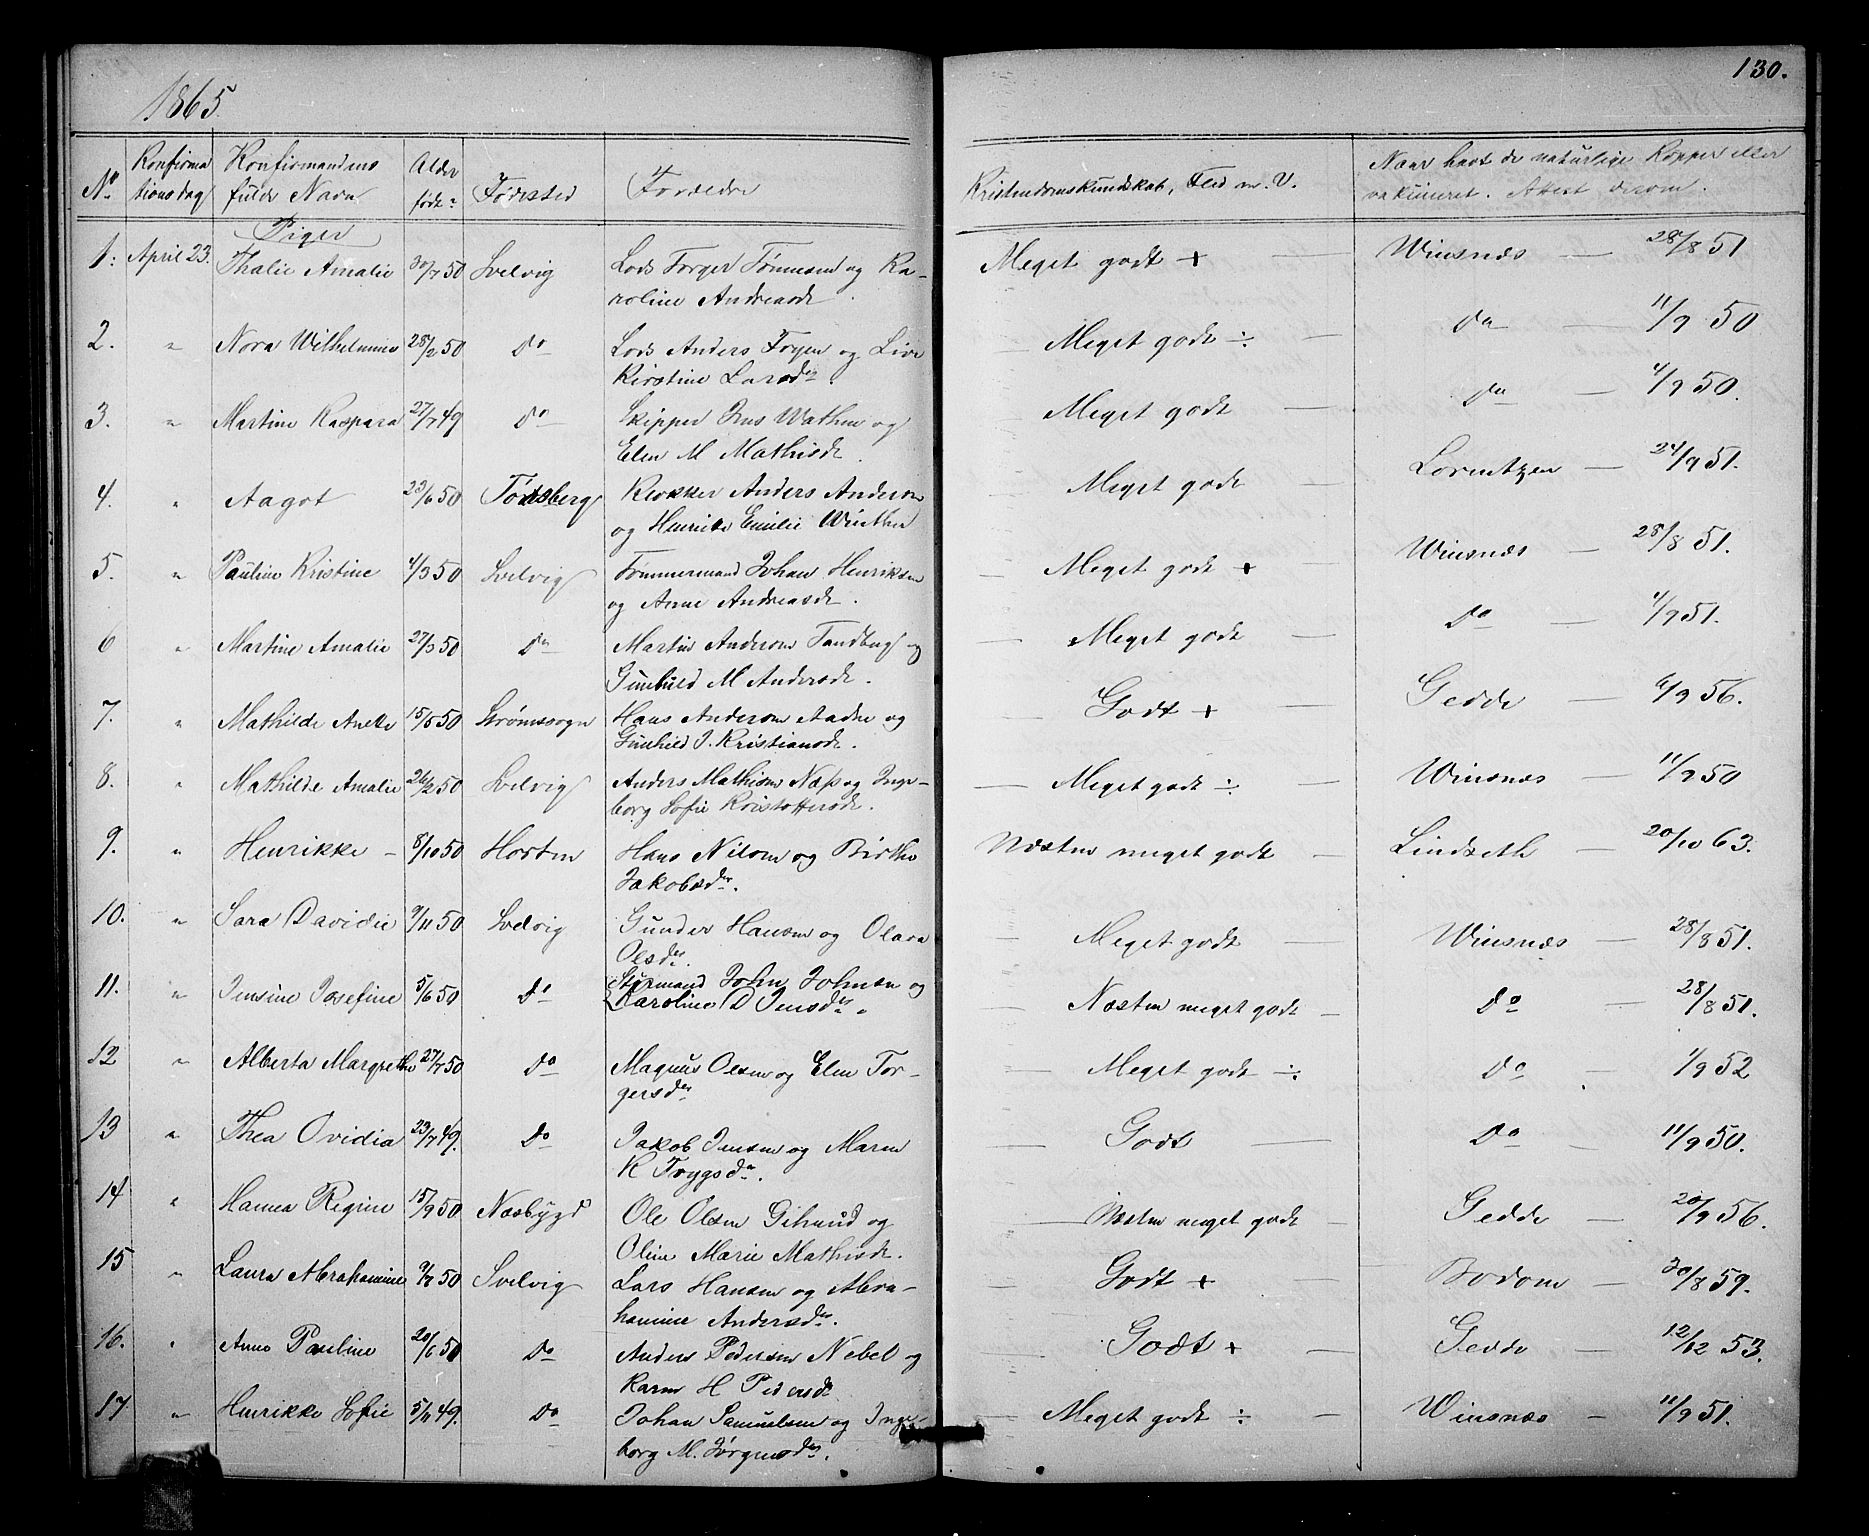 1865.
130.
No. Konfirmationsdag Konfirmandens fulde Navn Alder født Fødested Forældre Kristendomskundskab, Flid m. V. Naar havt de naturlige Kopper eller vakcineret. Attest derom.
Piger
1. April 23. Thalie Amalie 30/7 50 Svelvig Lods Torger Tønnesen og Ka- Meget godt + — Winsnæs — 28/8 51
roline Andreasdr.
2. " Nora Wilhelmine 28/2 50 Do Lods Anders Torgen og Live — Meget godt ÷ — Do — 11/9 50
Kirstine Larsdr.
3. " Martine Kaspara 27/7 49 Do Skipper Jens Wathne og — Meget godt — Do — 4/9 50.
Elen M Mathisdr.
4. " Aagot 23/6 50 Tønsberg Klokker Anders Andersen — Meget godt — Lorentzen — 24/9 51.
og Henrike Emilie Winther
5. " Pauline Kristine 4/3 50 Svelvig Tømmermand Johan Henriksen — Meget godt + — Winsnæs — 28/8 51.
og Anne Andreasdr.
6 " Martine Amalie 27/3 50 Do Martin Andersen Tandberg og — Meget godt — Do — 11/9 51.
Gunhild M Andersdr.
7. " Mathilde Anette 15/5 50 Strømssogn Hans Andersen Aadne og — Godt + — Gedde — 6/9 56.
Gunhild J. Kristiansdr.
8. " Mathilde Amalie 26/2 50 Svelvig Anders Mathisen Næss og Inge- — Meget godt ÷ — Winsnæs — 11/9 50
borg Sofie Kristoffersdr.
9. " Henrikke — 8/10 50 Horten Hans Nilsen og Birthe Næsten meget godt — Lindseth — 20/10 63.
Jakobsdr.
10. " Sara Davidie 9/11 50 Svelvig Gunder Hansen og Olava — Meget godt — Winsnæs — 28/8 51.
Olsdr.
11. " Jensine Josefine 5/6 50 Do Styrmand John Johnsen og — Næsten meget godt — Do — 28/8 51.
Karoline D Jensdr.
12 " Alberta Margrethe 27/7 50 Do Magnus Olsen og Elen Tor- — Meget godt ÷ Do — 1/9 52
gersdr
13 " Thea Ovidia 23/7 49. Do Jakob Jensen og Maren — Godt — Do — 11/9 50.
K Trygsdr.
14 " Hanna Regine 15/9 50 Næsbygd Ole Olsen og — Næsten meget godt — Gedde — 20/9 56.
Oline Marie Mathisdr.
15 " Laura Abrahamine 9/7 50 Svelvig Lars Hansen og Abra- — Godt + — Bodom — 30/8 59.
hamine Andersdr.
16. " Anne Pauline 20/6 50 Do Anders Pedersen Nebel og — Godt + — Gedde — 12/12 53.
Karen H Pedersdr
17 " Henrikke Sofie 5/11 49. Do Johan Samuelsen og Inge- — Meget godt ÷ — Winsnæs — 11/9 51.
borg M. Jørgensdr.